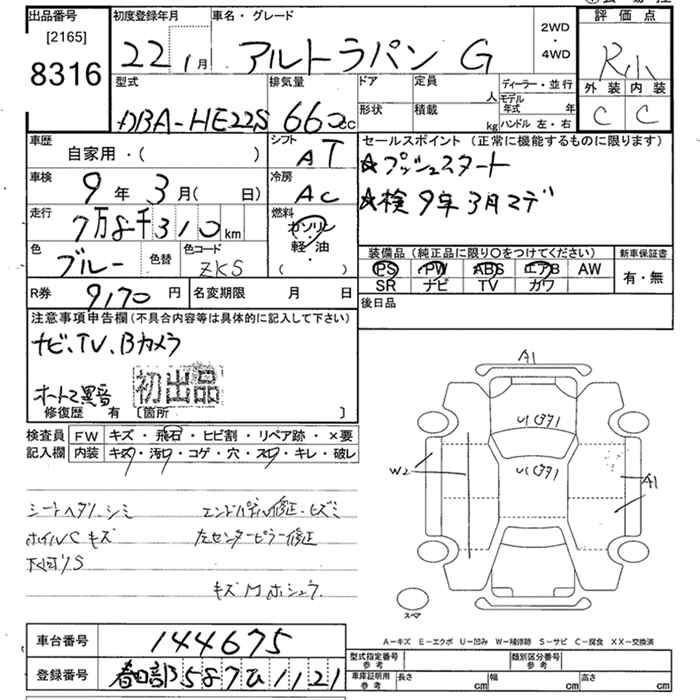 出品番号
[2165]
8316
初度登録年月
22年1月
車名・グレード
アルトラパン G
2WD
・
4WD
評価点
R小
外装 内装
C C
型式
DBA-HE22S
排気量
660cc
ドア
形状
定員 人
積載 kg
ディーラー・並行
モデル年式 年
ハンドル 左・右
車歴
自家用・( )
シフト
AT
車検
9年3月( 日)
冷房
AC
走行
7万8千310km
燃料
ガソリン
・
軽油
( )
色
ブルー
色替
色コード
ZKS
R券 9170円
名変期限 月 日
セールスポイント (正常に機能するものに限ります)
☆プッシュスタート
☆検9年3月マデ
装備品 (純正品に限り〇をつけてください)
PS PW ABS エアB AW
SR ナビ TV カワ
新車保証書
有・無
後日品
注意事項申告欄 (不具合内容等は具体的に記入して下さい)
ナビ、TV、Bカメラ
初出品
修復歴 有 〔箇所 〕
検査員記入欄
FW キズ・飛石・ヒビ割・リペア跡・×要
内装 キズ・汚れ・コゲ・穴・スレ・キレ・破レ
シートヘタリ、シミ
エンドパネル修正・ヒズミ
ホイルCキズ
左センターピラー修正
下回りS
A1
W2
A1
スペア
A-キズ E-エクボ U-凹み W-補修跡 S-サビ C-腐食 XX-交換済
車台番号 144675
登録番号 春日部 587 ひ 1121
型式指定番号
参考
類別区分番号
参考
車庫証明用
参考
長さ cm
幅 cm
高さ cm